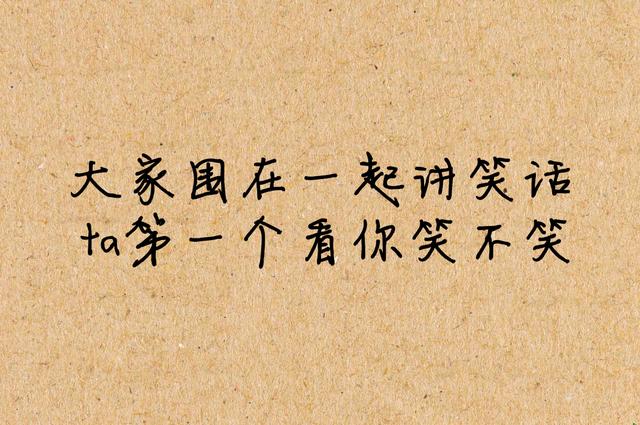 大家围在一起讲笑话
ta第一个看你笑不笑